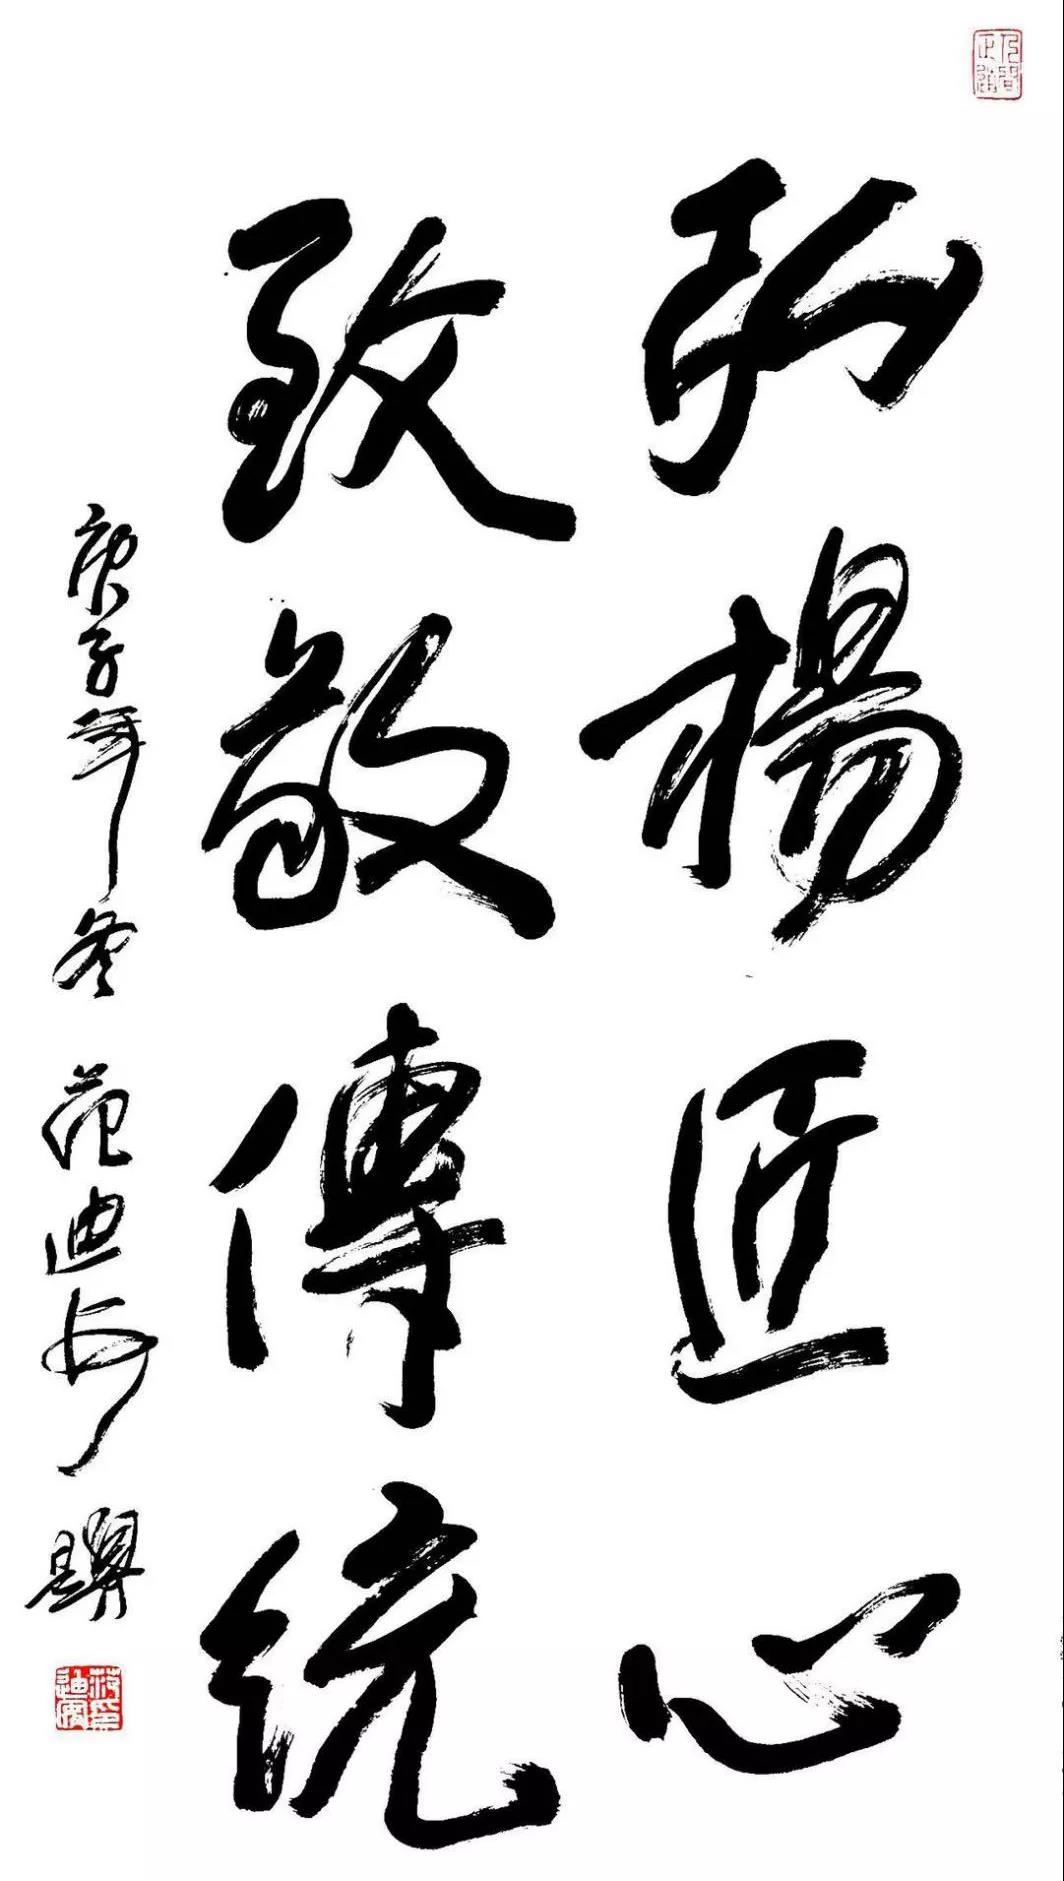 弘楊匠心
致敬傳統
庚子年冬 范迪安 題